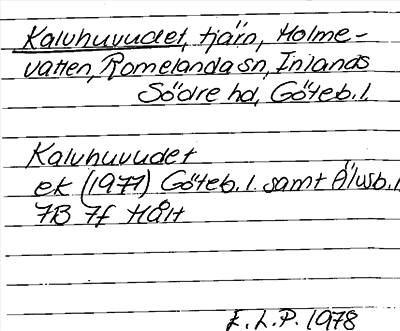 Kalvhuvudet, tjärn, Holme-
vatten, Romelanda sn, Inlands
Södre hd, Göteb. l.
Kalvhuvudet
ek (1977) Göteb. l. samt Älvsb. l
7B 7f Hålt
E. L. P. 1978